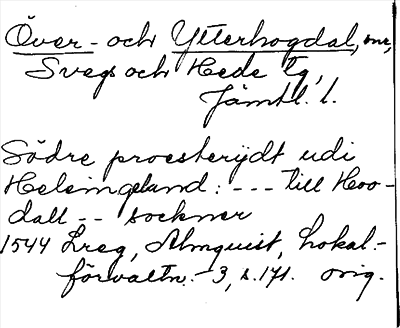 Över- och Ytterhogdal, snr,
Svegs och Hede tg,
Jämtl. l.
Södre proesterijdt udi
Helsingeland: --- till Hoo-
dall -- sockner
1544 Lreg, Almquist, Lokal-
förvaltn. 3, s. 171. orig.